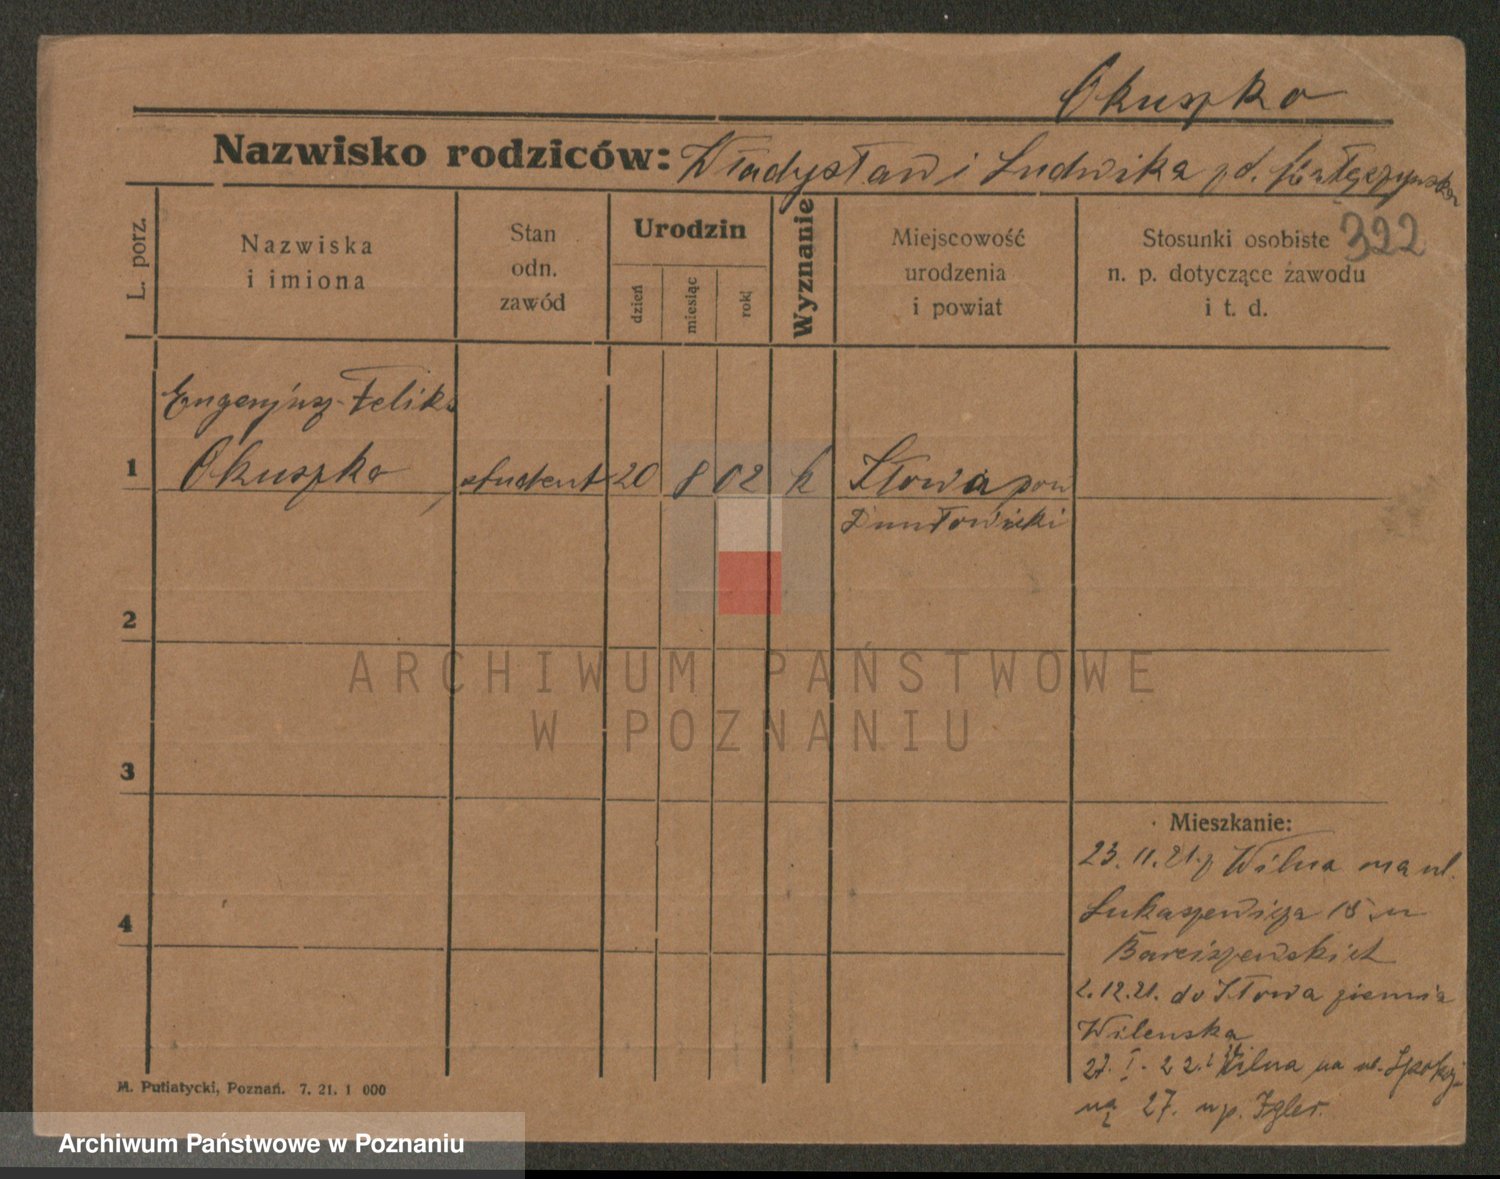 Okuszko
Nazwisko rodziców: Władysław i Ludwika
322
L. porz.
Nazwiska
i imiona
Stan
odn.
zawód
Urodzin
dzień
miesiąc
rok
Wyznanie
Miejscowość
urodzenia
i powiat
Stosunki osobiste
n. p. dotyczące zawodu
i t. d.
Eugenjusz-Feliks
1 Okuszko student 20 8 02 k Iłowa pow
Duniłowicki
2
ARCHIWUM PAŃSTWOWE
W POZNANIU
3
Mieszkanie:
23. 11. 21. z Wilna na ul.
4 Łukaszewicza 18 u
Barciszewskich
2.12.21. do Iłowa ziemia
Wilenska
27. I. 22. z Wilna na ul. Spokoj-
ną 27. u p. Igler.
M. Putiatycki, Poznań. 7. 21. 1 000
Archiwum Państwowe w Poznaniu